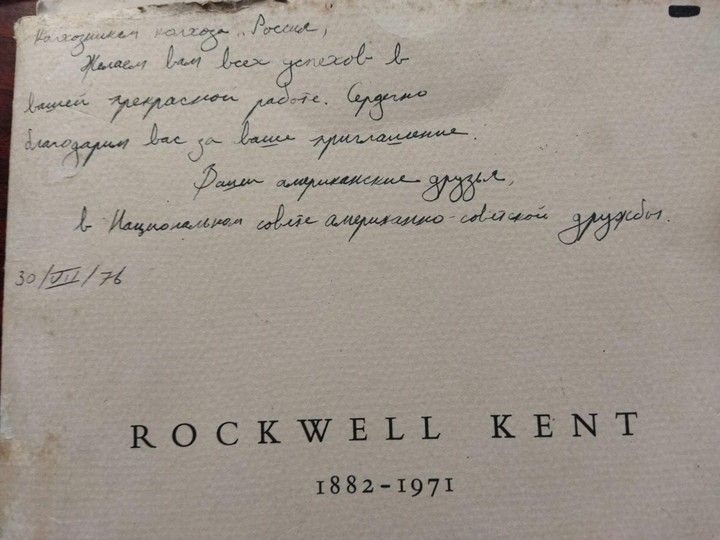 Колхозникам колхоза "Россия",
Желаем вам всех успехов в
вашей прекрасной работе. Сердечно
благодарим вас за ваше приглашение.
Ваши американские друзья,
в Национальном совете американно-советской дружбы.
30/VII/76
ROCKWELL KENT
1882-1971